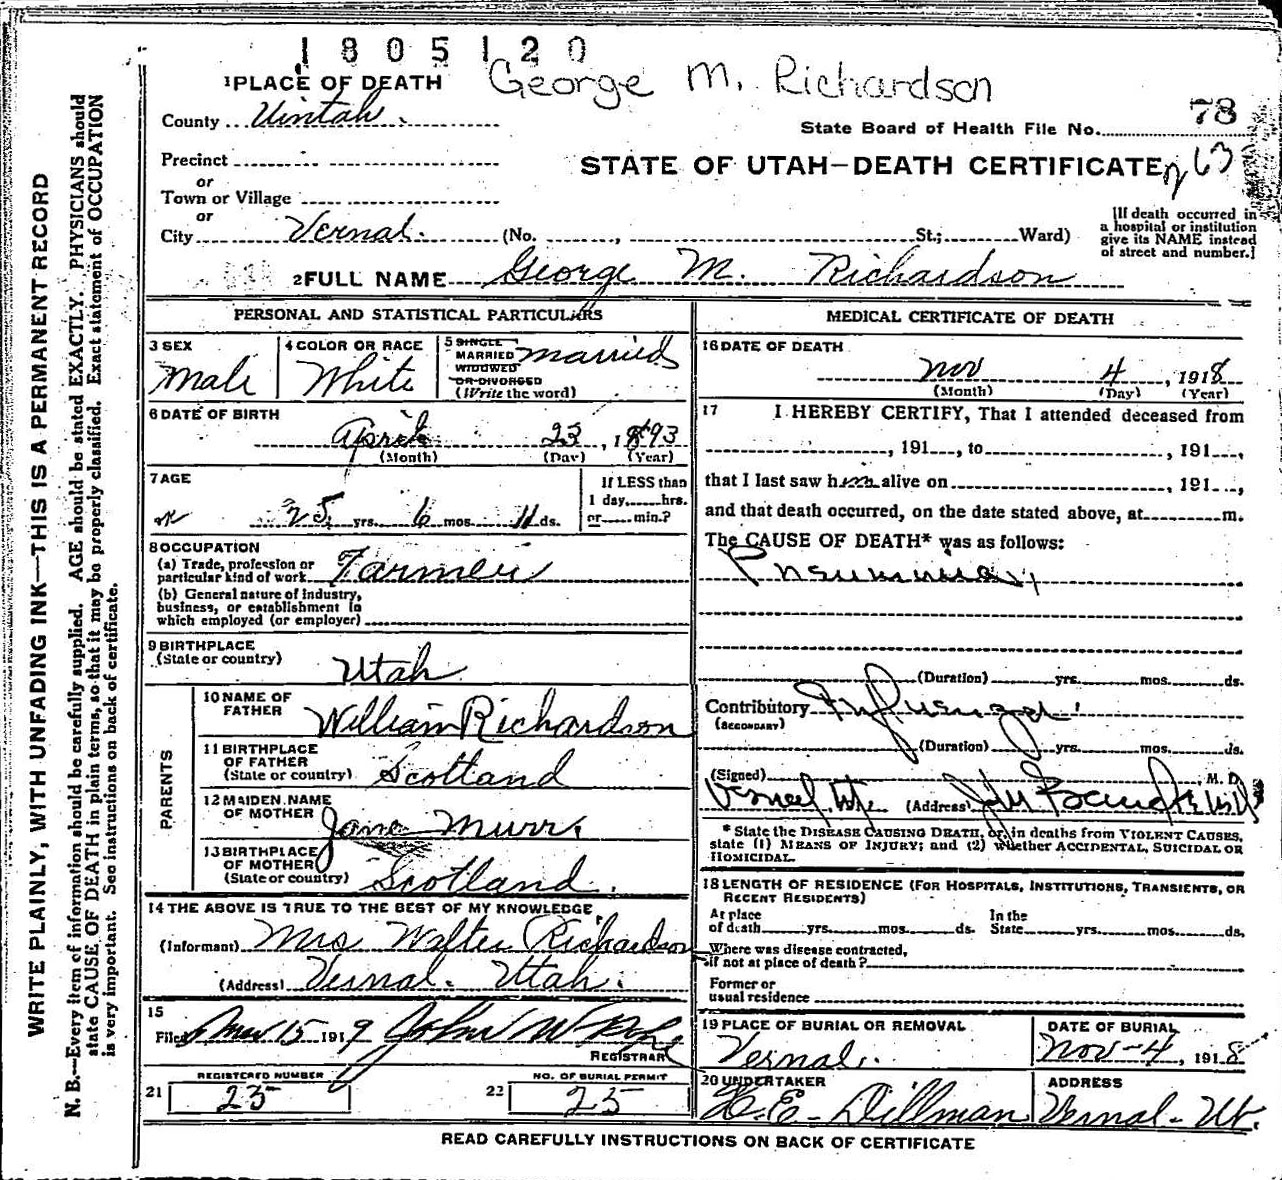 1805120
George M. Richardson
1 PLACE OF DEATH
County Uintah.
State Board of Health File No. 78
Precinct
STATE OF UTAH—DEATH CERTIFICATE 263
or
Town or Village
or
City Vernal. (No. , St.; Ward)
[If death occurred in a hospital or institution give its NAME instead of street and number.]
2 FULL NAME George M. Richardson
PERSONAL AND STATISTICAL PARTICULARS
3 SEX
Male
4 COLOR OR RACE
White
5 SINGLE
MARRIED
WIDOWED
OR DIVORCED
(Write the word)
Married
6 DATE OF BIRTH
April 23, 1893
(Month) (Day) (Year)
7 AGE
25 yrs. 6 mos. 11 ds.
If LESS than
1 day, hrs.
or min.?
8 OCCUPATION
(a) Trade, profession or
particular kind of work Farmer
(b) General nature of industry,
business, or establishment in
which employed (or employer)
9 BIRTHPLACE
(State or country)
Utah
PARENTS
10 NAME OF
FATHER
William Richardson
11 BIRTHPLACE
OF FATHER
(State or country) Scotland
12 MAIDEN NAME
OF MOTHER
Jane Murr.
13 BIRTHPLACE
OF MOTHER
(State or country) Scotland.
14 THE ABOVE IS TRUE TO THE BEST OF MY KNOWLEDGE
(Informant) Mrs Walter Richardson
(Address) Vernal. Utah.
15
Filed 15 1919 John W Pope
REGISTRAR
21 REGISTERED NUMBER
25
22 NO. OF BURIAL PERMIT
25
MEDICAL CERTIFICATE OF DEATH
16 DATE OF DEATH
Nov 4, 1918
(Month) (Day) (Year)
17 I HEREBY CERTIFY, That I attended deceased from
, 191 , to , 191 ,
that I last saw him alive on , 191 ,
and that death occurred, on the date stated above, at m.
The CAUSE OF DEATH* was as follows:
Pneumonia
(Duration) yrs. mos. ds.
Contributory Influenza
(SECONDARY)
(Duration) yrs. mos. ds.
(Signed) , M. D.
Vernal (Address)
* State the DISEASE CAUSING DEATH, or, in deaths from VIOLENT CAUSES,
state (1) MEANS OF INJURY; and (2) whether ACCIDENTAL, SUICIDAL OR
HOMICIDAL.
18 LENGTH OF RESIDENCE (FOR HOSPITALS, INSTITUTIONS, TRANSIENTS, OR
RECENT RESIDENTS)
At place
of death yrs. mos. ds.
In the
State yrs. mos. ds.
Where was disease contracted,
if not at place of death?
Former or
usual residence
19 PLACE OF BURIAL OR REMOVAL
Vernal.
DATE OF BURIAL
Nov-4, 1918
20 UNDERTAKER
E. Dillman
ADDRESS
Vernal-Ut.
READ CAREFULLY INSTRUCTIONS ON BACK OF CERTIFICATE
WRITE PLAINLY, WITH UNFADING INK—THIS IS A PERMANENT RECORD
N. B.—Every item of information should be carefully supplied. AGE should be stated EXACTLY. PHYSICIANS should
state CAUSE OF DEATH in plain terms, so that it may be properly classified. Exact statement of OCCUPATION
is very important. See instructions on back of certificate.